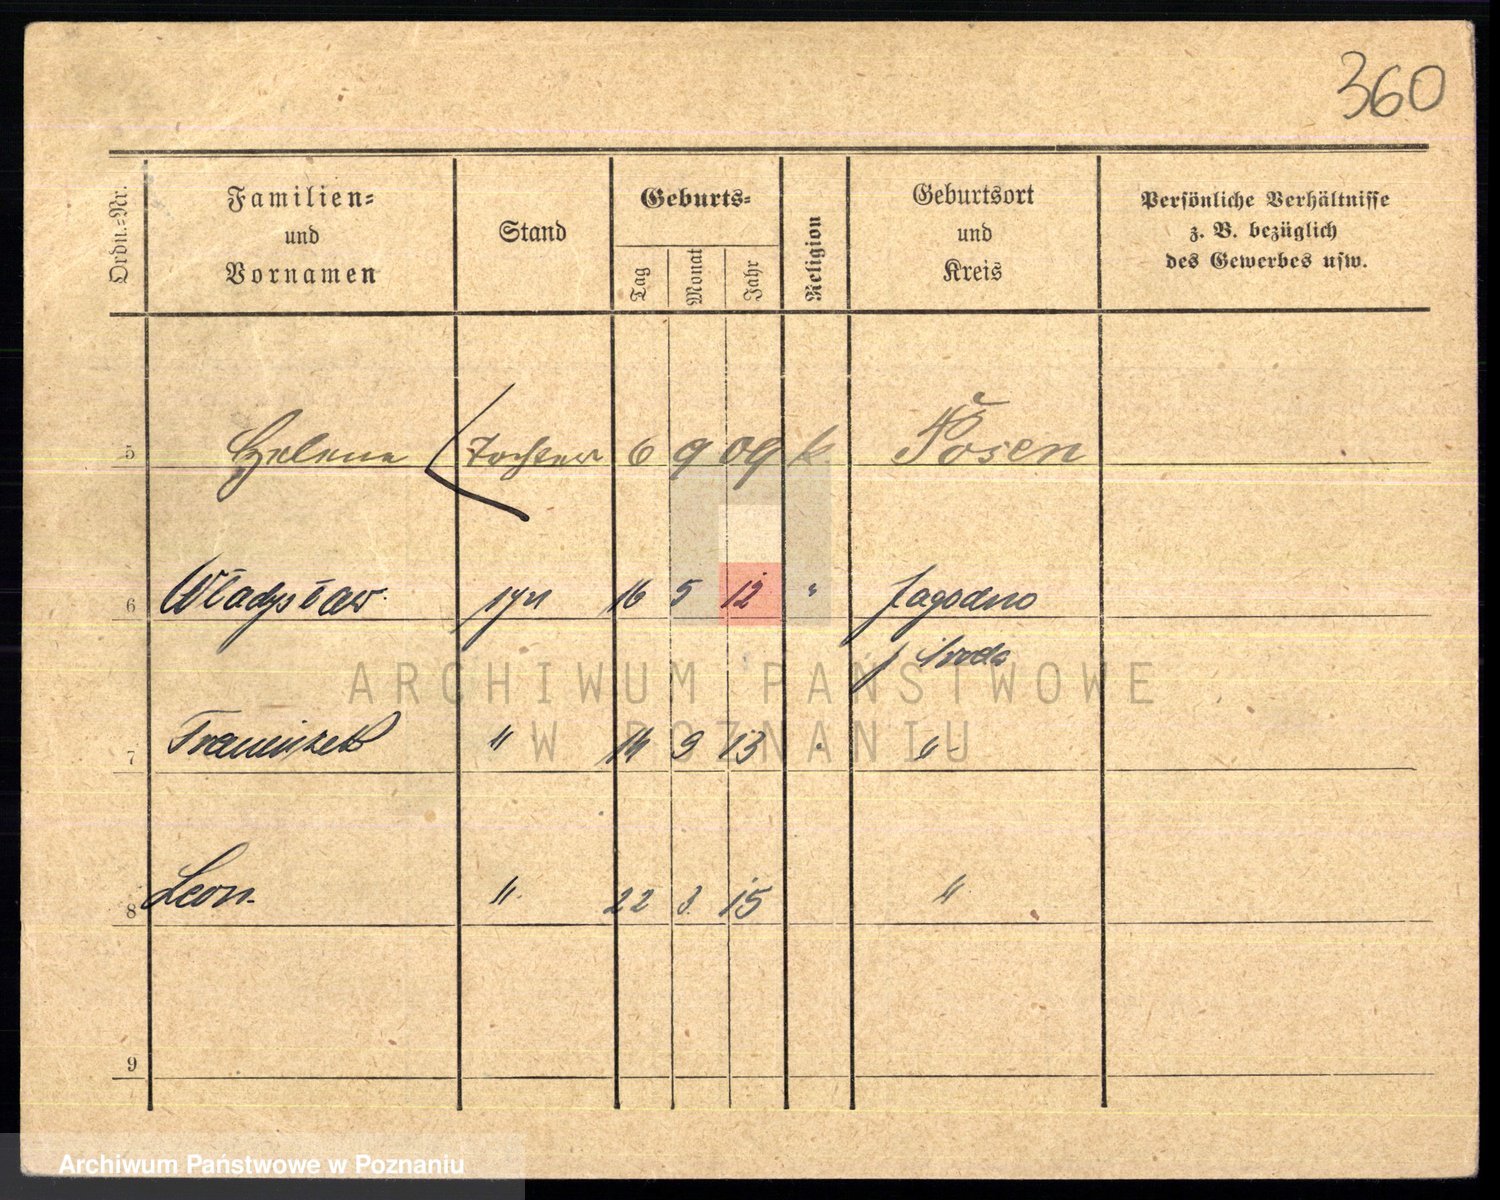 360
Ordn.-Nr.
Familien-
und
Vornamen
Stand
Geburts-
Tag
Monat
Jahr
Religion
Geburtsort
und
Kreis
Persönliche Verhältnisse
z. B. bezüglich
des Gewerbes usw.
5 Helene Tochter 6 9 09 k Posen
6 Władysław syn 16 5 12 " Jagodno
p Środa
7 Franciszek " 14 9 13 " "
8 Leon " 22 3 15 "
9
ARCHIWUM PAŃSTWOWE
W POZNANIU
Archiwum Państwowe w Poznaniu